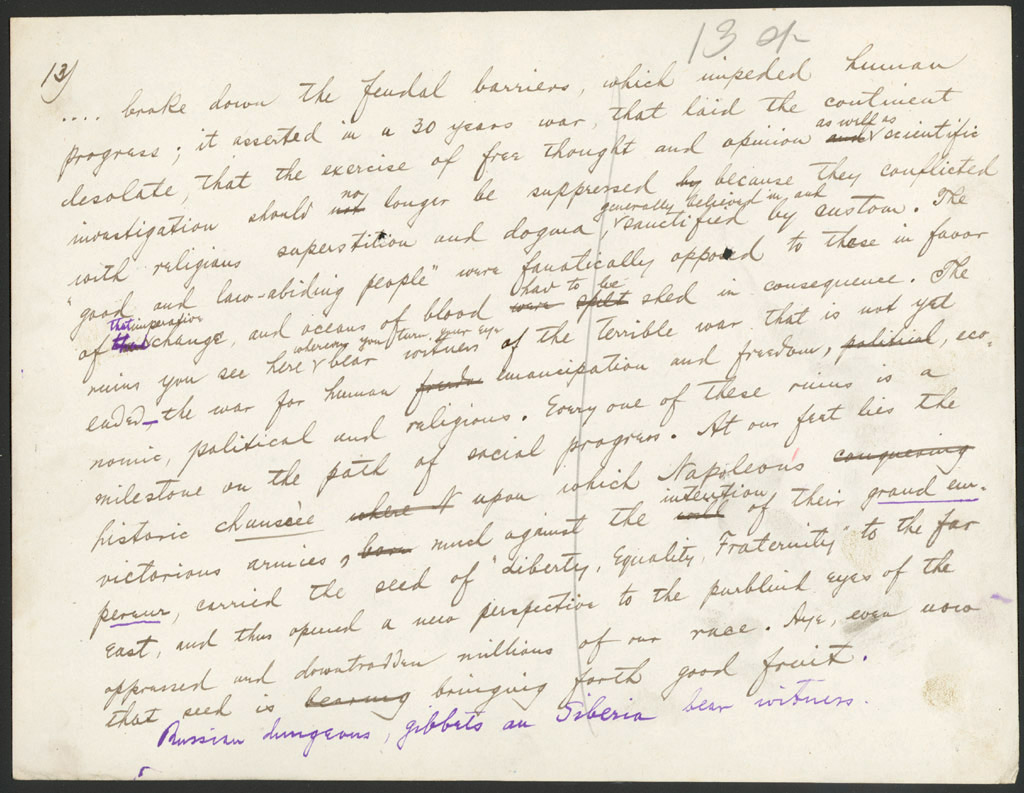 13)
13
.... broke down the feudal barriers, which impeded human
progress; it asserted in a 30 years war, that laid the continent
desolate, that the exercise of free thought and opinion and as well as scientific
investigation should not no longer be suppressed by because they conflicted
with religious superstition and dogma, generally believed in and sanctified by custom. The
"good and law-abiding people" were fanatically opposed to those in favor
of that imperative change, and oceans of blood were spilt had to be shed in consequence. The
ruins you see here wherever you turn your eye bear witness of the terrible war that is not yet
ended, the war for human freedom emancipation and freedom, political, eco-
nomic, political and religious. Every one of these ruins is a
milestone on the path of social progress. At our feet lies the
historic chaussée where N upon which Napoleons conquering
victorious armies, much against the will intention of their grand em-
pereur, carried the seed of "Liberty, Equality, Fraternity" to the far
East, and thus opened a new perspective to the purblind eyes of the
oppressed and downtrodden millions of our race. Aye, even now
that seed is bearing bringing forth good fruit.
Russian dungeons, gibbets an Siberia bear witness.